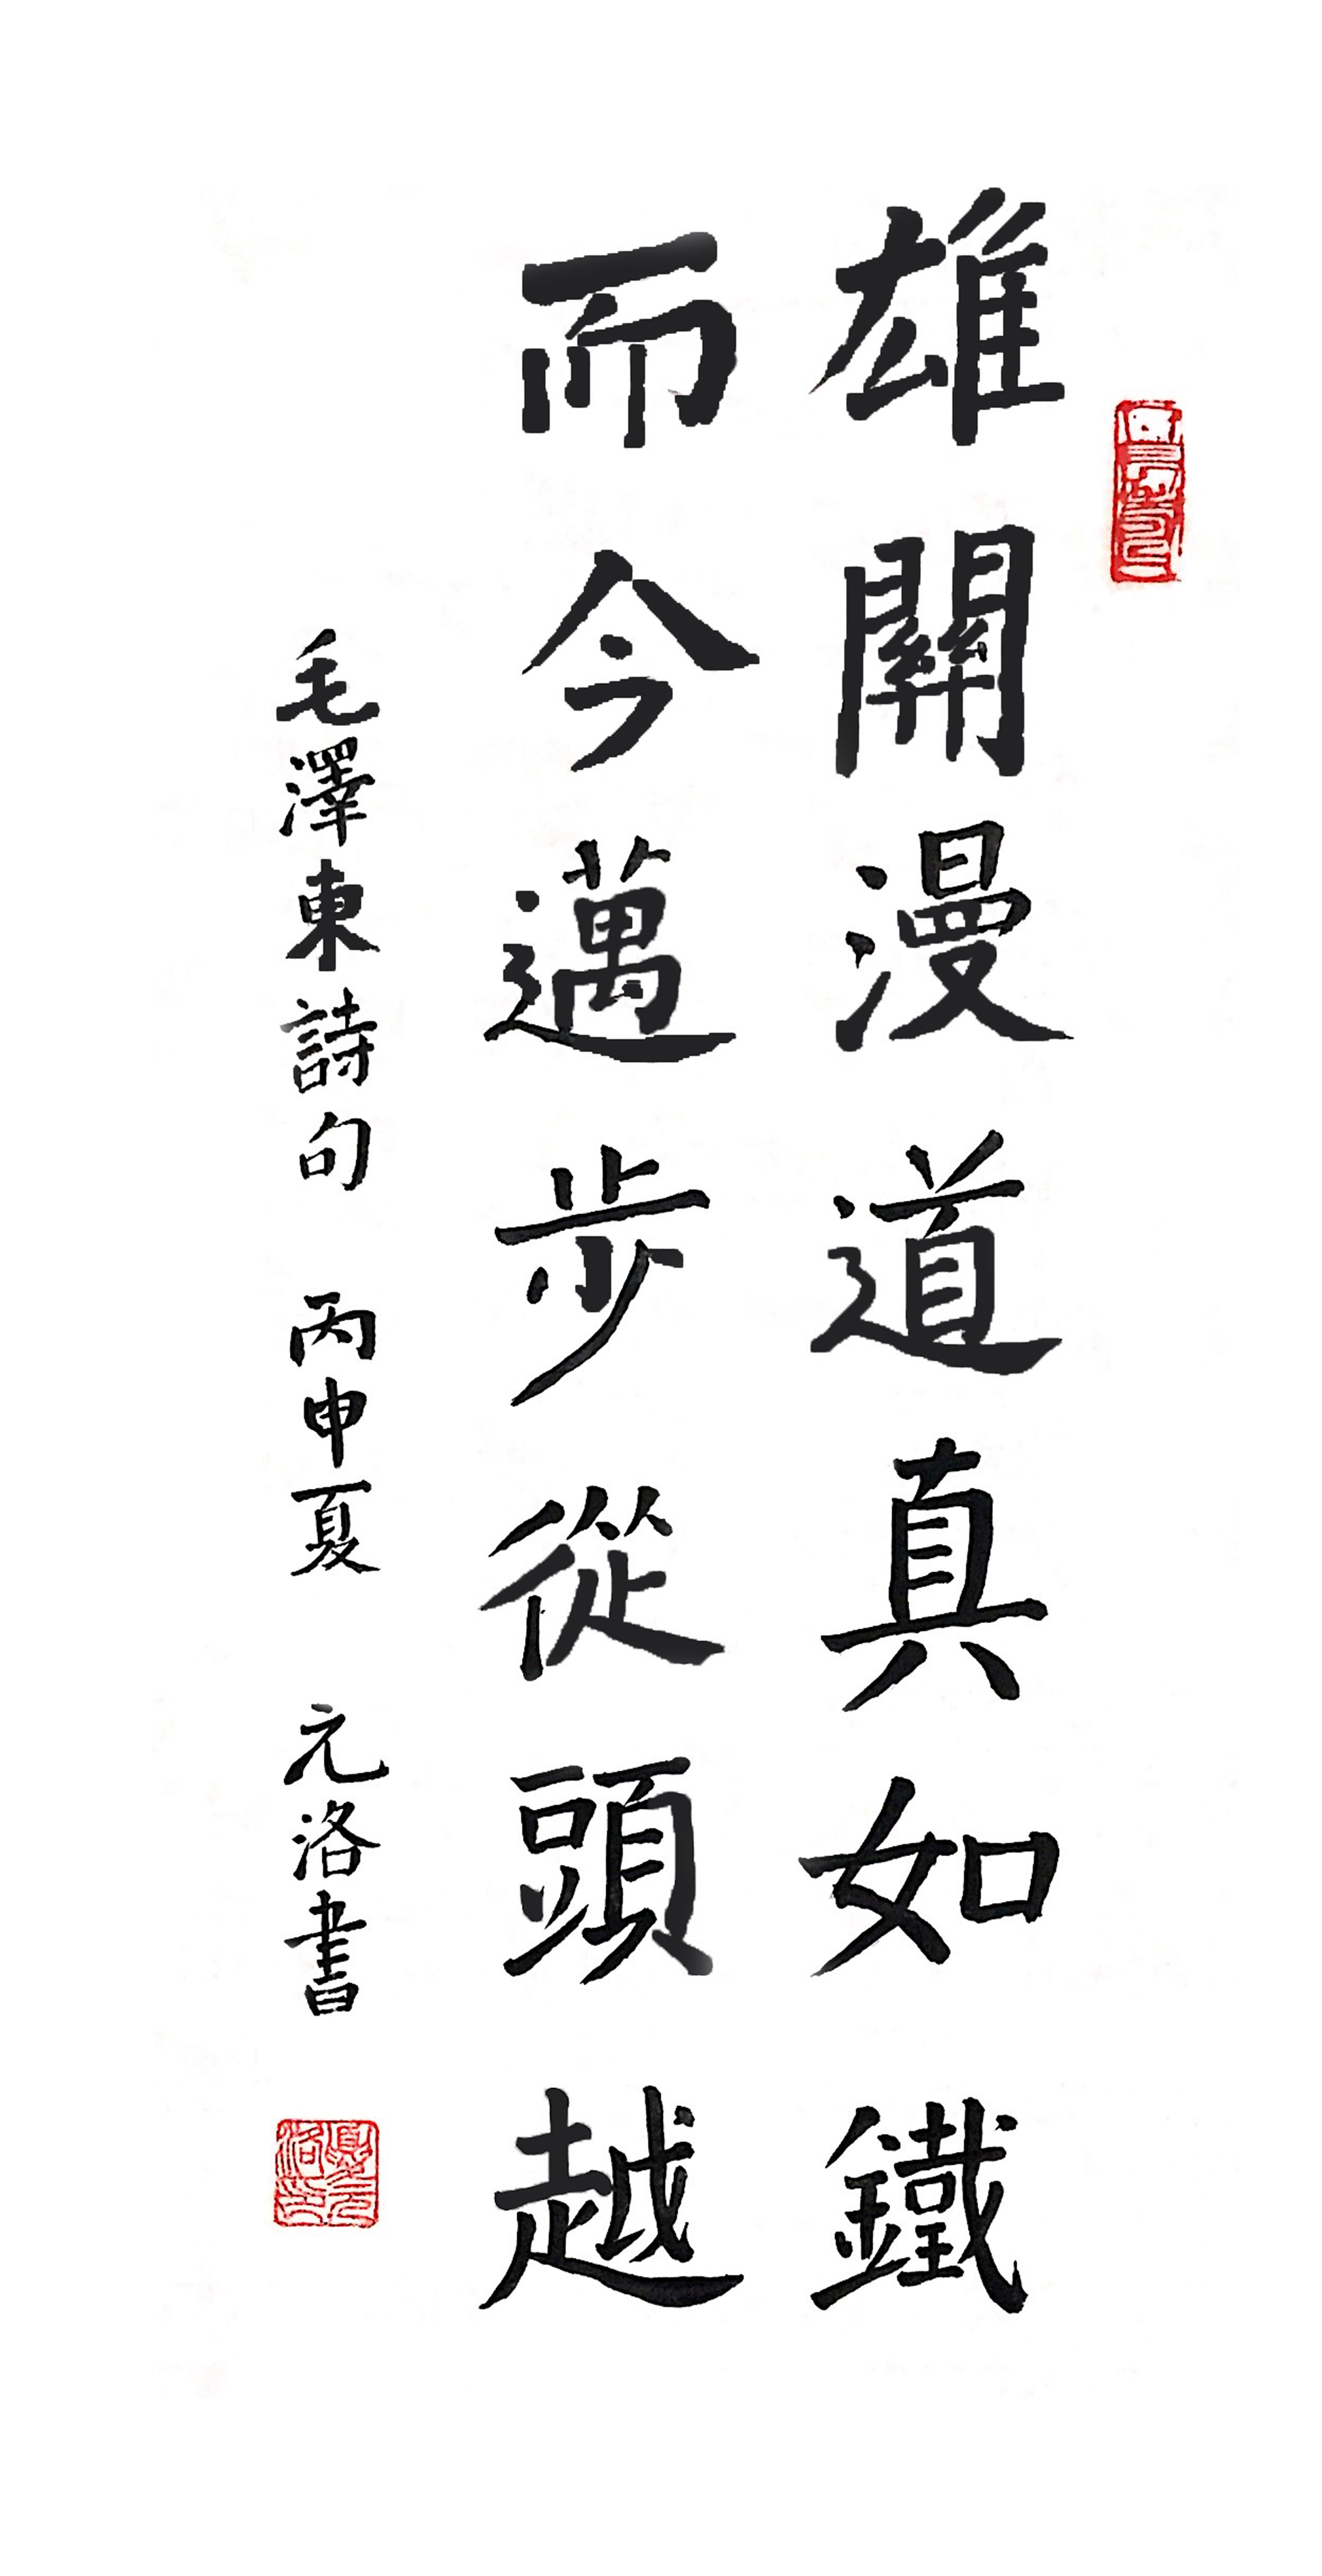 雄關漫道真如鐵
而今邁步從頭越
毛澤東詩句 丙申夏 元洛書